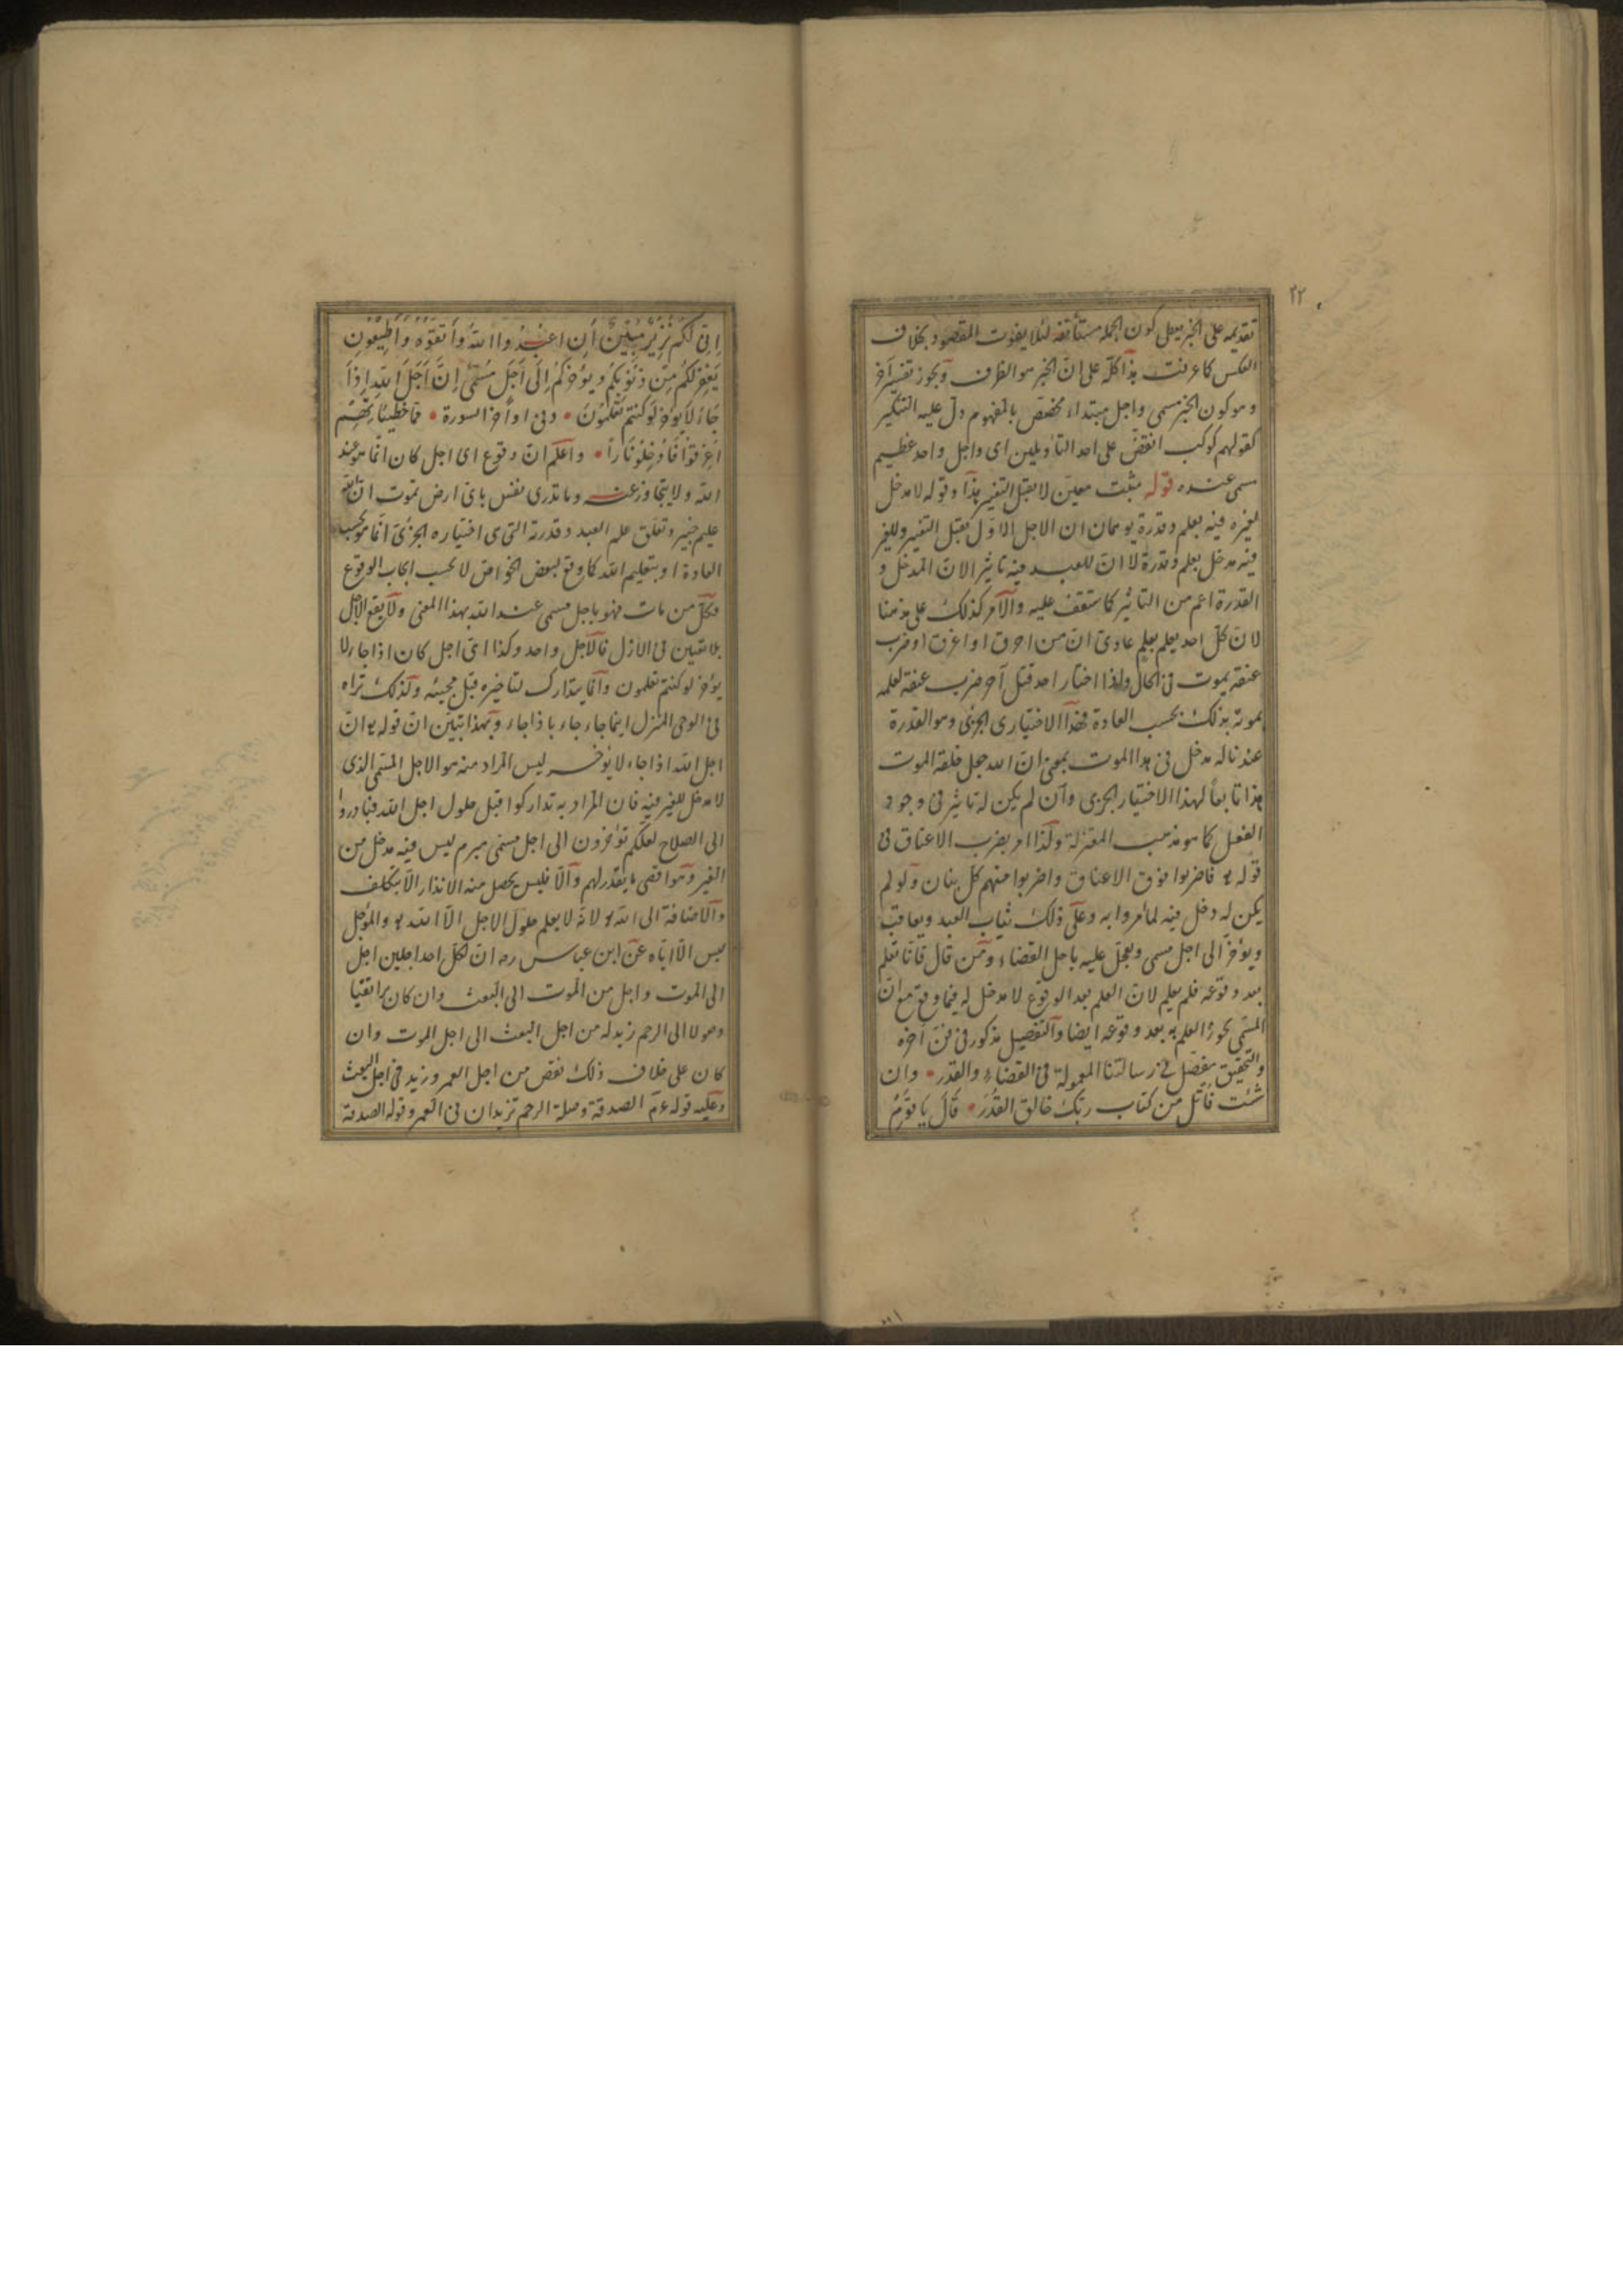 ٢٢
تقديمه على الخبر يعطى كون الجملة مستأنفة لئلا يفوت المقصود بخلاف
العكس كما عرفت هذا كله على ان الخبر هو الظرف ويجوز تفسير آخر
وهو كون الخبر مسمى واجل مبتداء مخصص بالمفهوم دل عليه التنكير
كقولهم كوكب انقض على احد التأويلين اى واجل واحد عظيم
مسمى عنده قوله مثبت معين لا يقبل التغير هذا وقوله لا مدخل
لغيره فيه بعلم وقدرة يوهمان ان الاجل الاول يقبل التغير وللغير
فيه مدخل بعلم وقدرة لا ان للعبد فيه تاثير الا ان المدخل و
القدرة اعم من التاثير كما ستقف عليه والامر كذلك على مذهبنا
لان كل احد يعلم بعلم عادى ان من احرق او اغرق او ضرب
عنقه يموت فى الحال ولذا اختار احد قتل آخر ضرب عنقه لعلمه
بموته بذلك بحسب العادة فهذا الاختيارى الجزئى وهو القدرة
عندنا له مدخل فى هذا الموت بمعنى ان الله جعل خلقة الموت
هذا تابعاً لهذا الاختيار الجزى وان لم يكن له تاثير فى وجود
الفعل كما هو مذهب المعتزلة ولذا امر بضرب الاعناق فى
قوله تع فاضربوا فوق الاعناق واضربوا منهم كل بنان ولو لم
يكن له دخل فيه لما امروا به وعلى ذلك يثاب العبد ويعاقب
ويؤخر الى اجل مسمى ويعجل عليه باجل القضاء ومن قال فانا نعلم
بعد وقوعه فلم يعلم لان العلم بعد الوقوع لا مدخل له فيما وقع مع ان
المسمى يجوز العلم به بعد وقوعه ايضا والتفصيل مذكور فى فن آخره
والتحقيق مفصل فى رسالتنا المعمولة فى القضاء والقدر وان
شئت فاتل من كتاب ربك خالق القدر قال يا قوم
انى لكم نذير مبين ان اعبدوا الله واتقوه واطيعون
يغفر لكم من ذنوبكم ويؤخركم الى اجل مسمى ان اجل الله اذا
جاء لا يؤخر لو كنتم تعلمون وفى اواخر السورة مما خطيئاتهم
اغرقوا فادخلوا نارا واعلم ان وقوع اى اجل كان انما هو عند
الله ولا يتجاوز عنه وما تدرى نفس باى ارض تموت ان الله
عليم خبير وتعلق علم العبد وقدرته التى هى اختياره الجزئى انما هو بحسب
العادة او بتعليم الله كما وقع لبعض الخواص لا بحسب ايجاب الوقوع
فكل من مات فهو باجل مسمى عند الله بهذا المعنى ولا يقع الاجل
بلا تعيين فى الازل فالاجل واحد وكذا اى اجل كان اذا جاء لا
يؤخر لو كنتم تعلمون وانما يتدارك لتاخيره قبل مجيئه ولذلك تراه
فى الوحى المنزل اينما جاء جاء باذا جاء وبهذا تبين ان قوله تع ان
اجل الله اذا جاء لا يؤخر ليس المراد منه هو الاجل المسمى الذى
لا مدخل للغير فيه فان المراد به تداركوا قبل حلول اجل الله فبادروا
الى الصلاح لعلكم تؤخرون الى اجل مسمى مبرم ليس فيه مدخل من
الغير وهو اقصى ما يقدر لهم والا فليس يحصل منه الانذار الا بتكلف
والاضافة الى الله تع لانه لا يعلم حلول الاجل الا الله تع والمؤجل
ليس الا اياه عن ابن عباس رضه ان لكل احد اجلين اجل
الى الموت واجل من الموت الى البعث وان كان برا تقيا
وصولا الى الرحم زيد له من اجل البعث الى اجل الموت وان
كان على خلاف ذلك نقص من اجل العمر وزيد فى اجل البعث
وعليه قوله عم الصدقة وصلة الرحم تزيدان فى العمر وقوله الصدقة